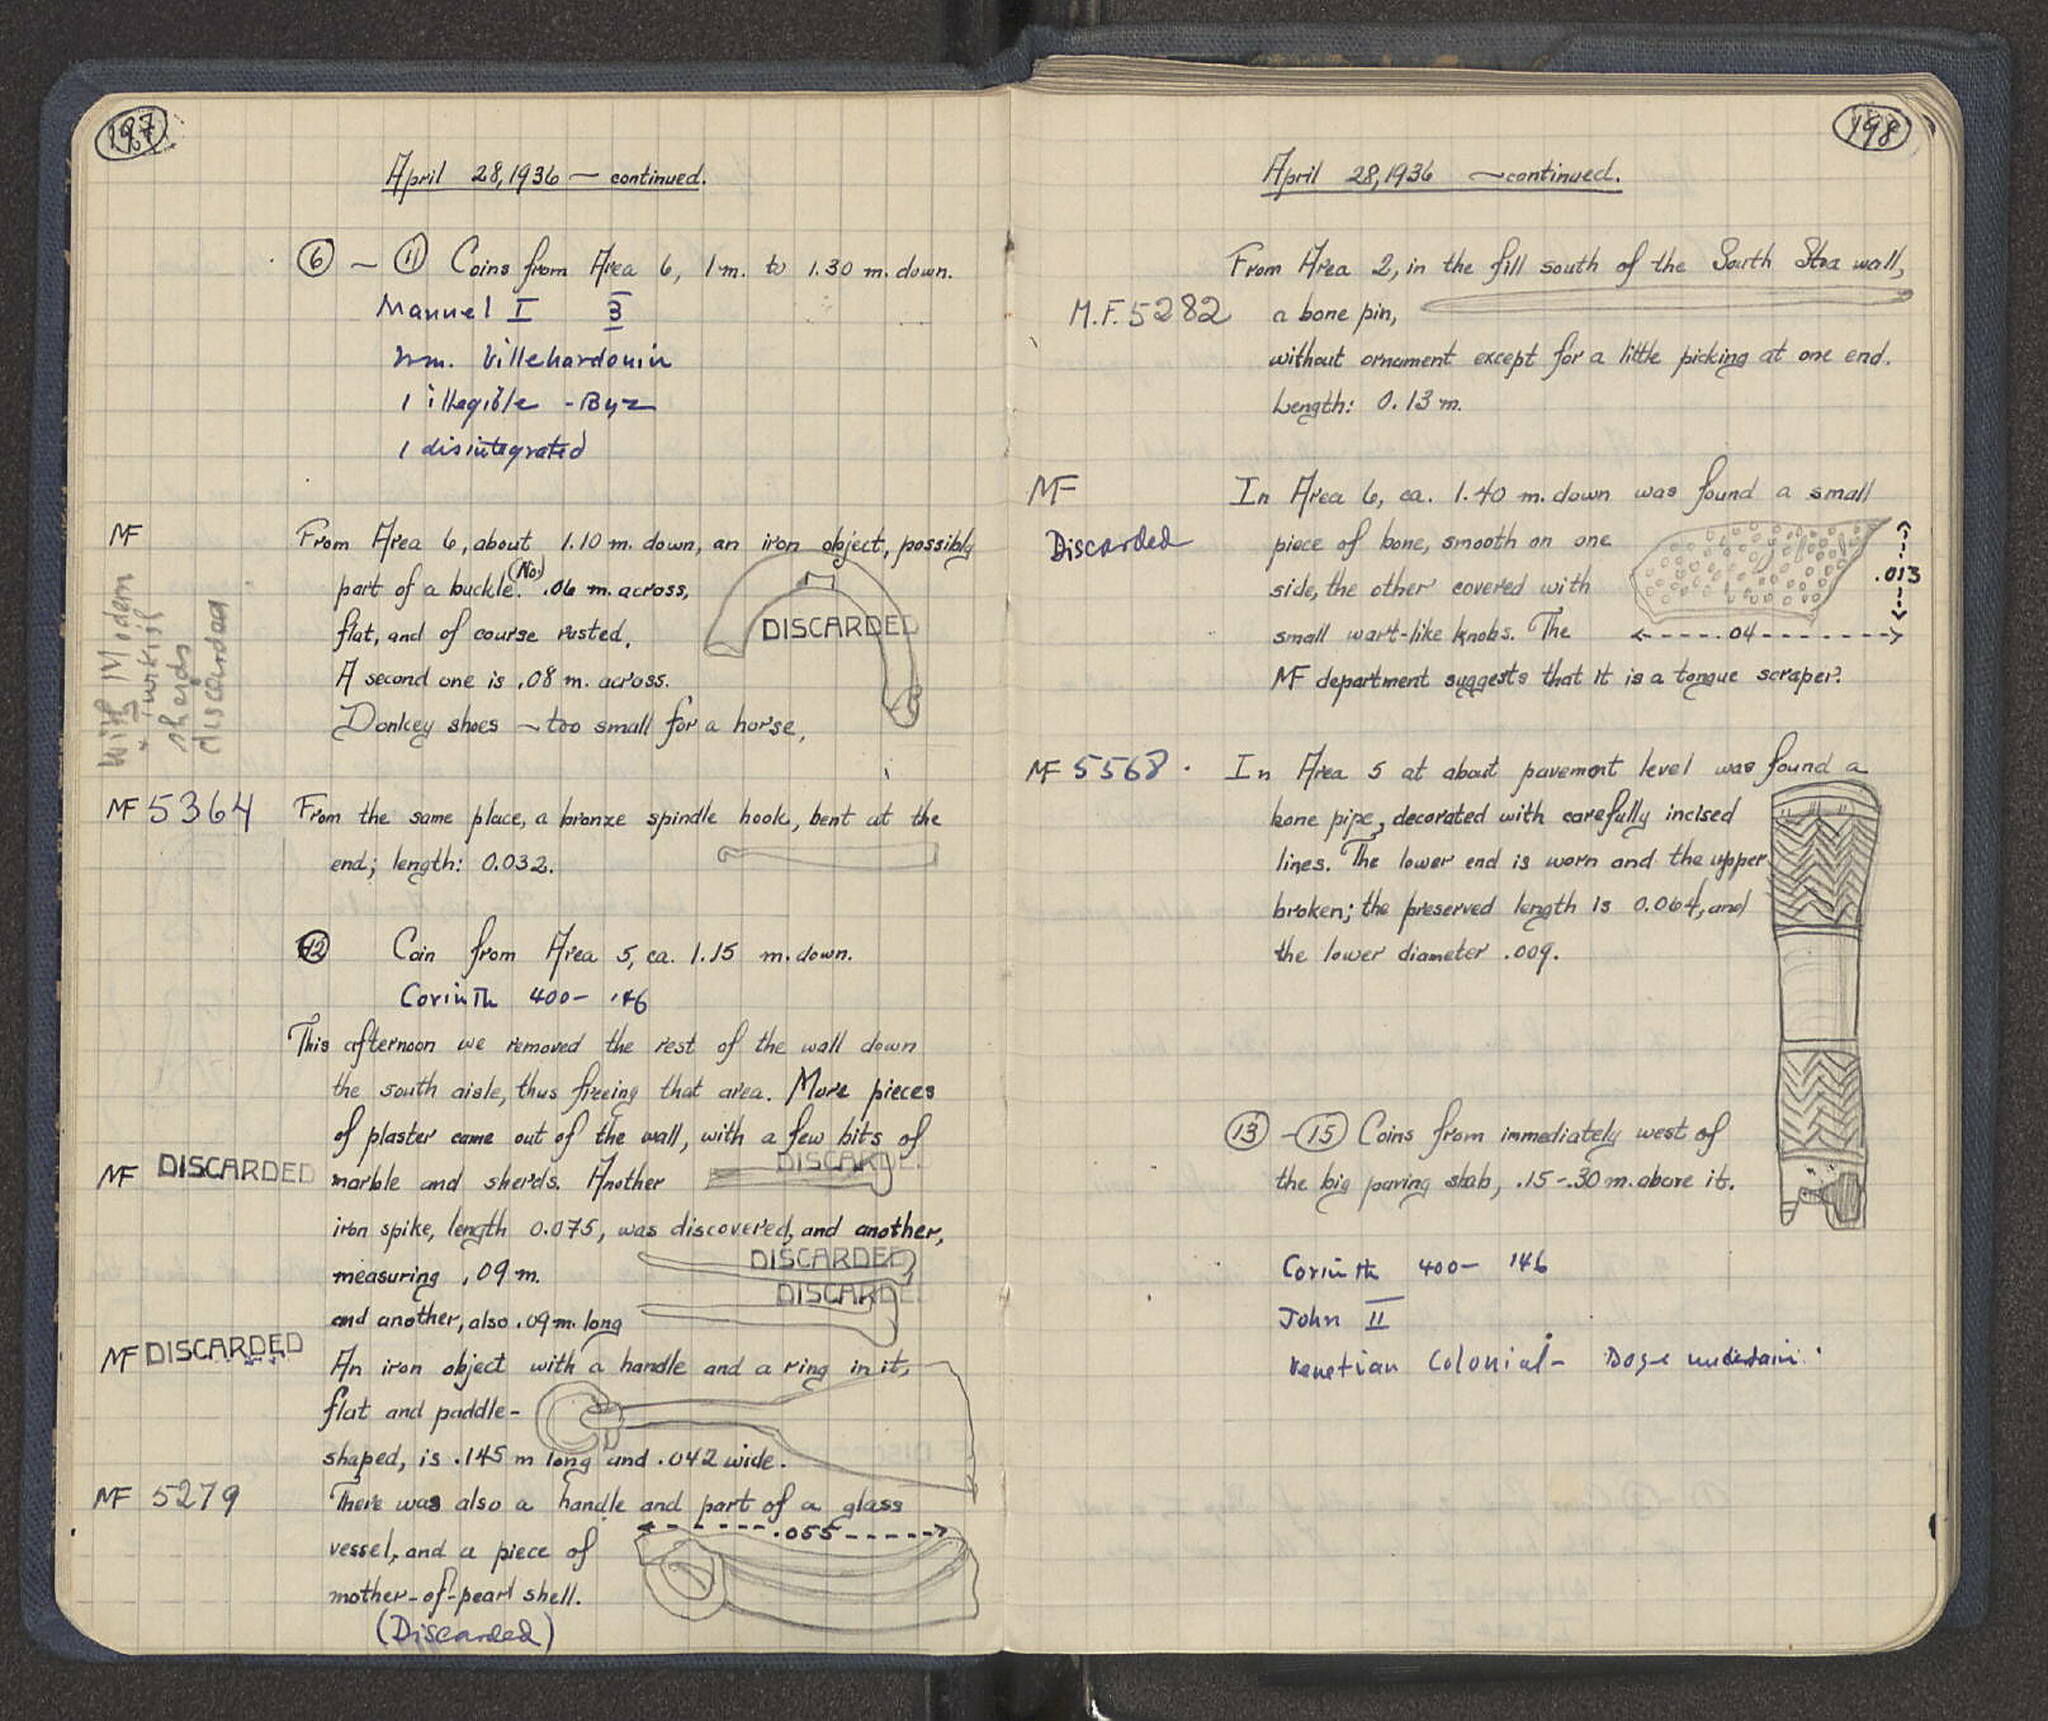 197
April 28, 1936 — continued.
⑥ – ⑪ Coins from Area 6, 1 m. to 1.30 m. down.
Manuel I 3
Wm. Villehardouin
1 illegible - Byz
1 disintegrated
MF
From Area 6, about 1.10 m. down, an iron object, possibly
part of a buckle. (No) .06 m. across,
flat, and of course rusted.
DISCARDED
A second one is .08 m. across.
Donkey shoes — too small for a horse.
With Modern
sherds
discarded
MF 5364
From the same place, a bronze spindle hook, bent at the
end; length: 0.032.
⑫ Coin from Area 5, ca. 1.15 m. down.
Corinth 400– 146
This afternoon we removed the rest of the wall down
the south aisle, thus freeing that area. More pieces
of plaster came out of the wall, with a few bits of
MF DISCARDED
marble and sherds. Another
DISCARDED
iron spike, length 0.075, was discovered, and another,
measuring .09 m.
DISCARDED
and another, also .09 m. long
DISCARDED
MF DISCARDED
An iron object with a handle and a ring in it,
flat and paddle-
shaped, is .145 m long and .042 wide.
MF 5279
There was also a handle and part of a glass
vessel, and a piece of
.055
mother-of-pearl shell.
(Discarded)
198
April 28, 1936 — continued.
From Area 2, in the fill south of the South Stoa wall,
M.F. 5282
a bone pin,
without ornament except for a little picking at one end.
Length: 0.13 m.
MF
Discarded
In Area 6, ca. 1.40 m. down was found a small
piece of bone, smooth on one
side, the other covered with
small wart-like knobs. The
.013
.04
MF department suggests that it is a tongue scraper?
MF 5568.
In Area 5 at about pavement level was found a
bone pipe, decorated with carefully incised
lines. The lower end is worn and the upper
broken; the preserved length is 0.064, and
the lower diameter .009.
⑬ – ⑮ Coins from immediately west of
the big paving slab, .15 – .30 m. above it.
Corinth 400– 146
John II
Venetian Colonial – Doge uncertain.